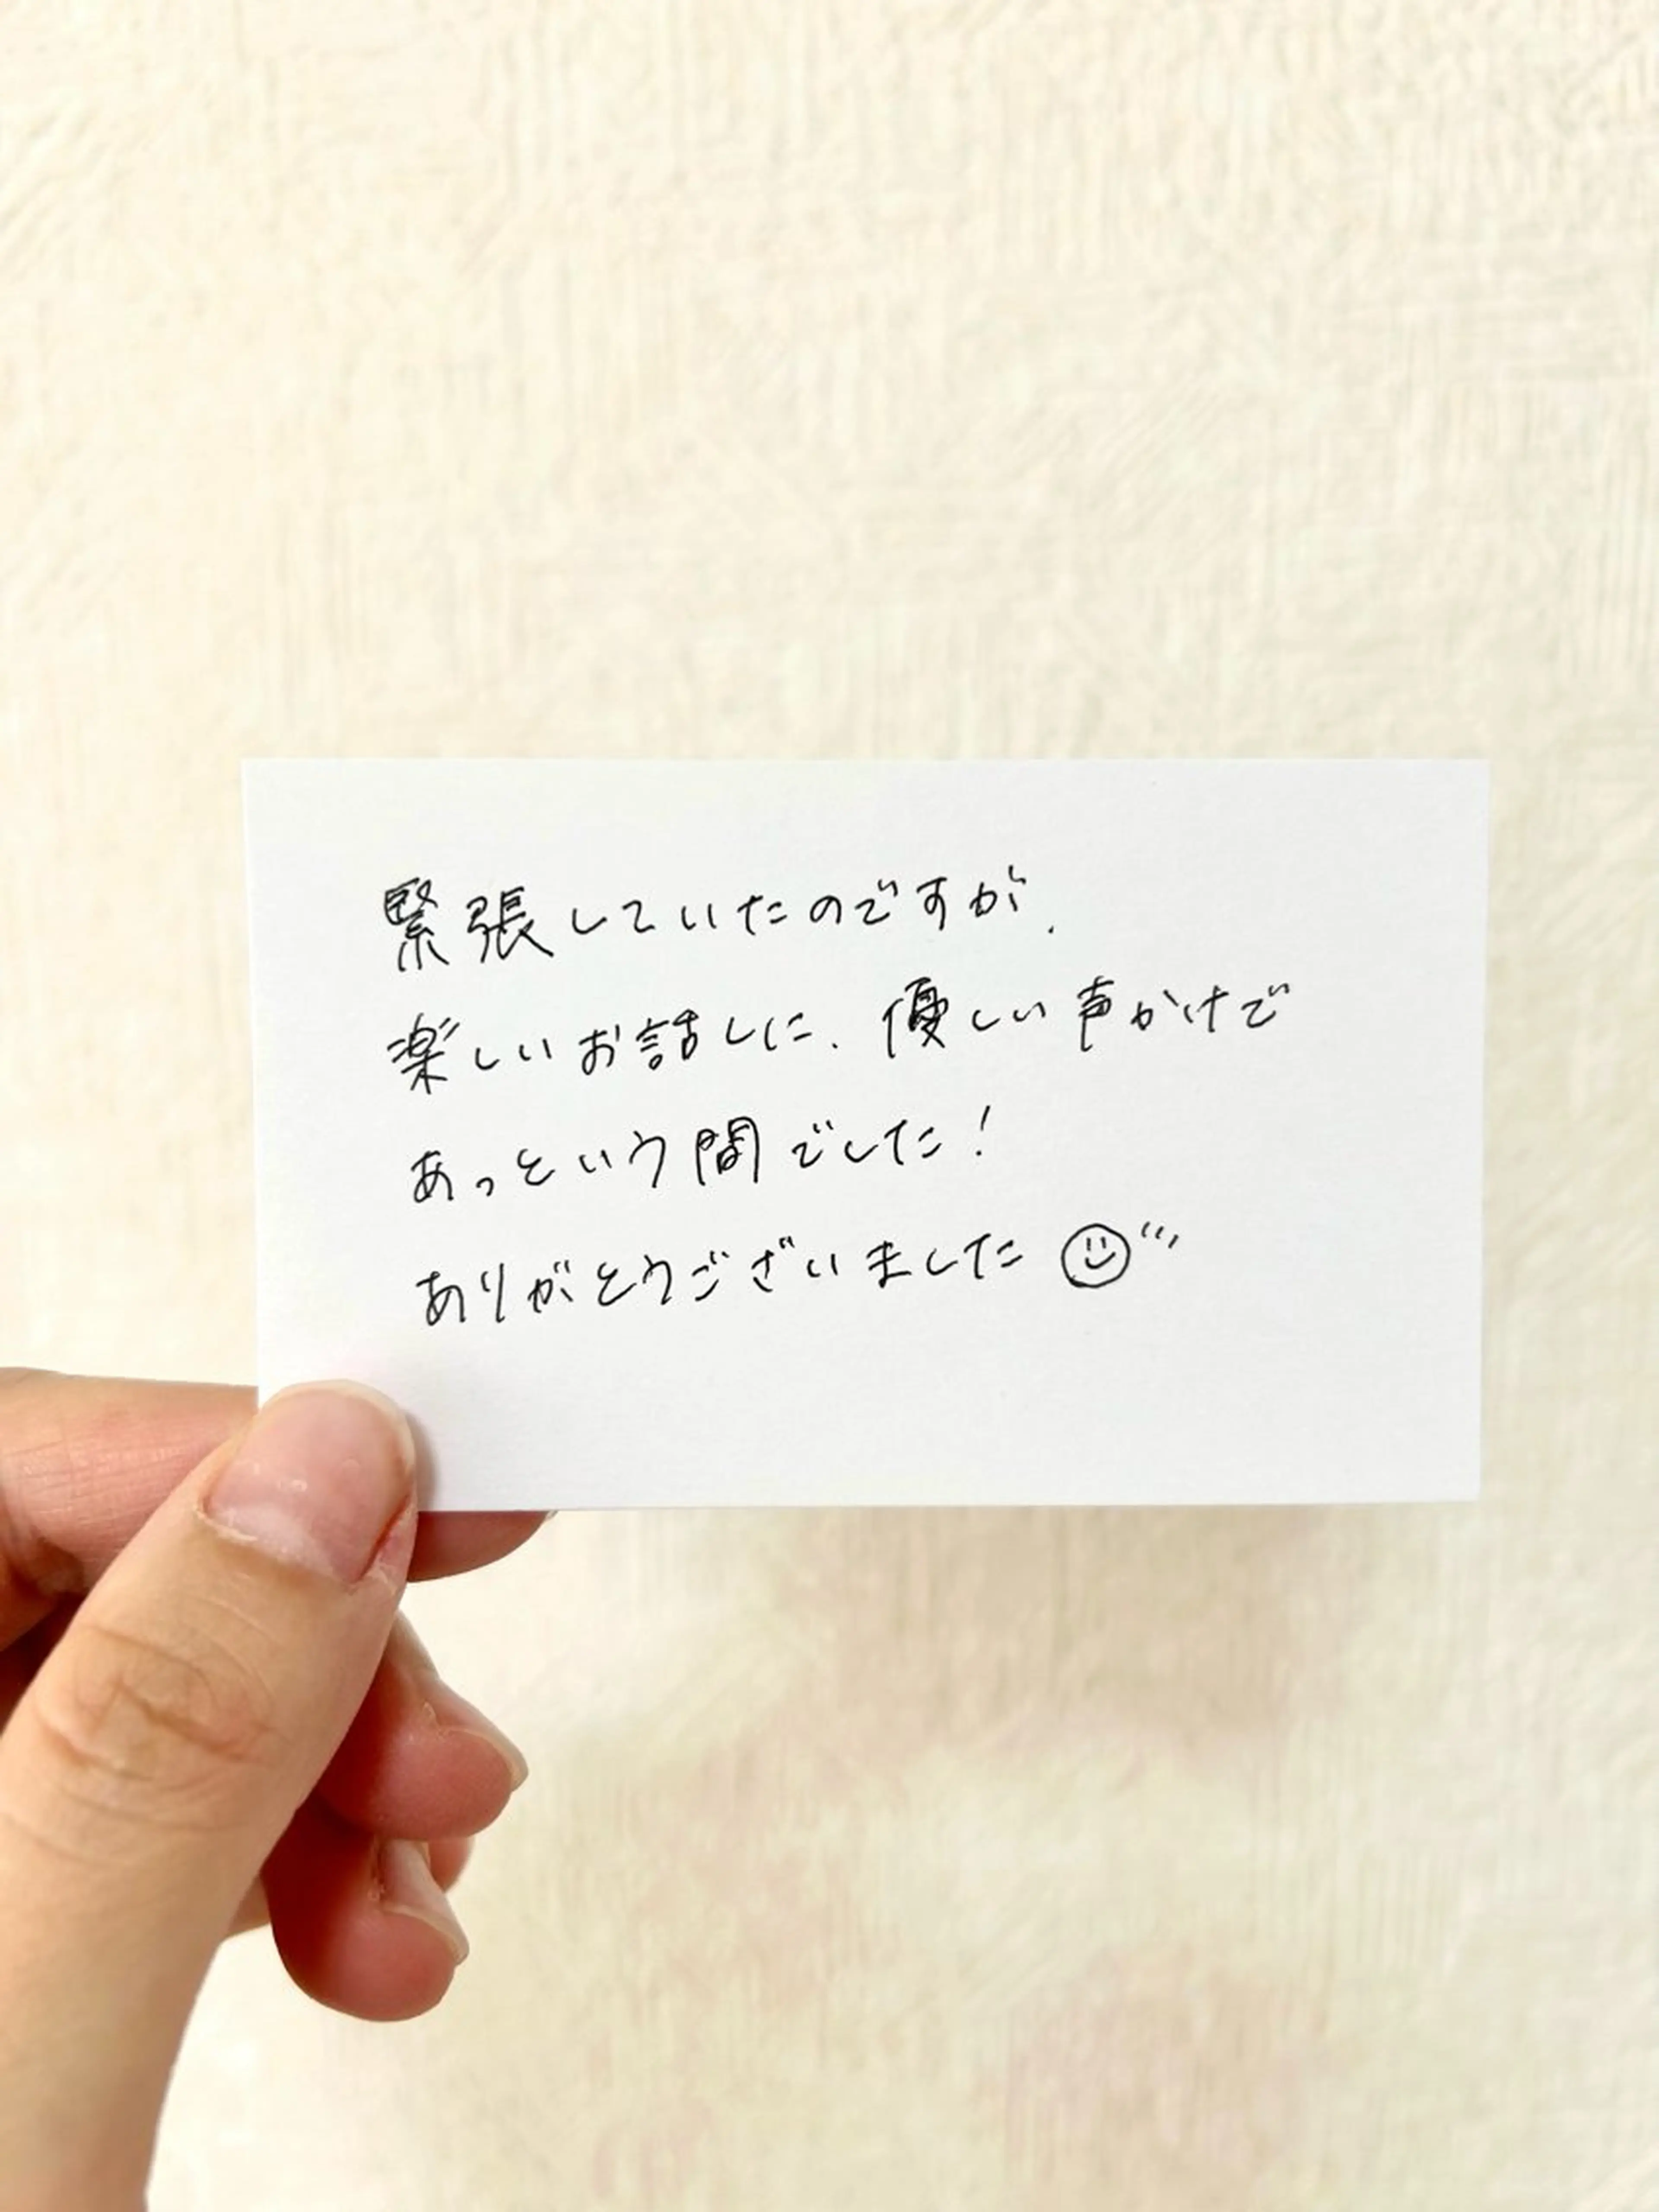 緊張していたのですが、
楽しいお話しに、優しい声かけで
あっという間でした！
ありがとうございました